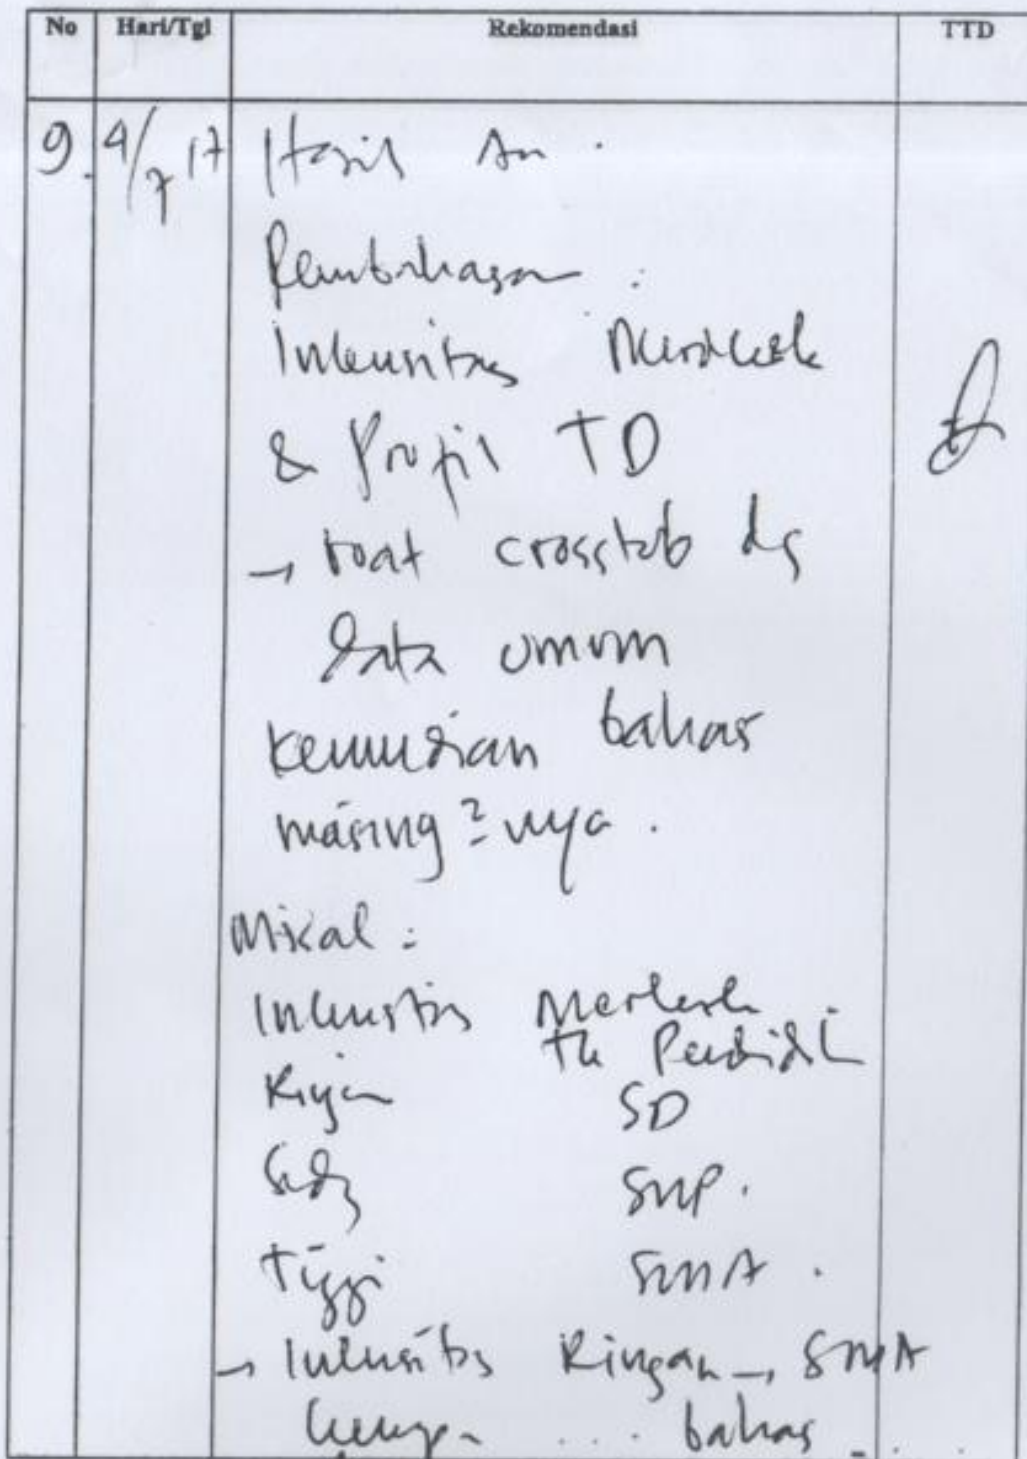 No Hari/Tgl Rekomendasi TTD
9. 4/7 17 Hasil dn.
Pembahasan :
Intensitas Merokok
& Profil TD
→ buat crosstab dg
data umum
kemudian bahas
masing²nya.
Misal :
Intensitas Merokok
Tk Pendidik
Ringan SD
Sedg SMP.
Tinggi SMA.
→ Intensitas Ringan → SMA
... bahas ...